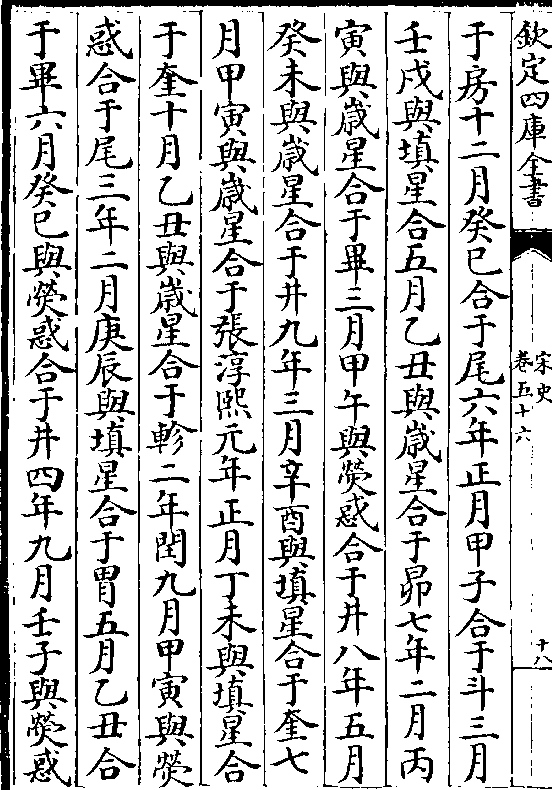 欽定四庫全書
宋史
卷五十六
十八
于房十二月癸巳合于尾六年正月甲子合于斗三月
壬戌與填星合五月乙丑與歲星合于昴七年二月丙
寅與歲星合于畢三月甲午與熒惑合于井八年五月
癸未與歲星合于井九年三月辛酉與填星合于奎七
月甲寅與歲星合于張淳熙元年正月丁未與填星合
于奎十月乙丑與歲星合于軫二年閏九月甲寅與熒
惑合于尾三年二月庚辰與填星合于胃五月乙丑合
于畢六月癸巳與熒惑合于井四年九月壬子與熒惑